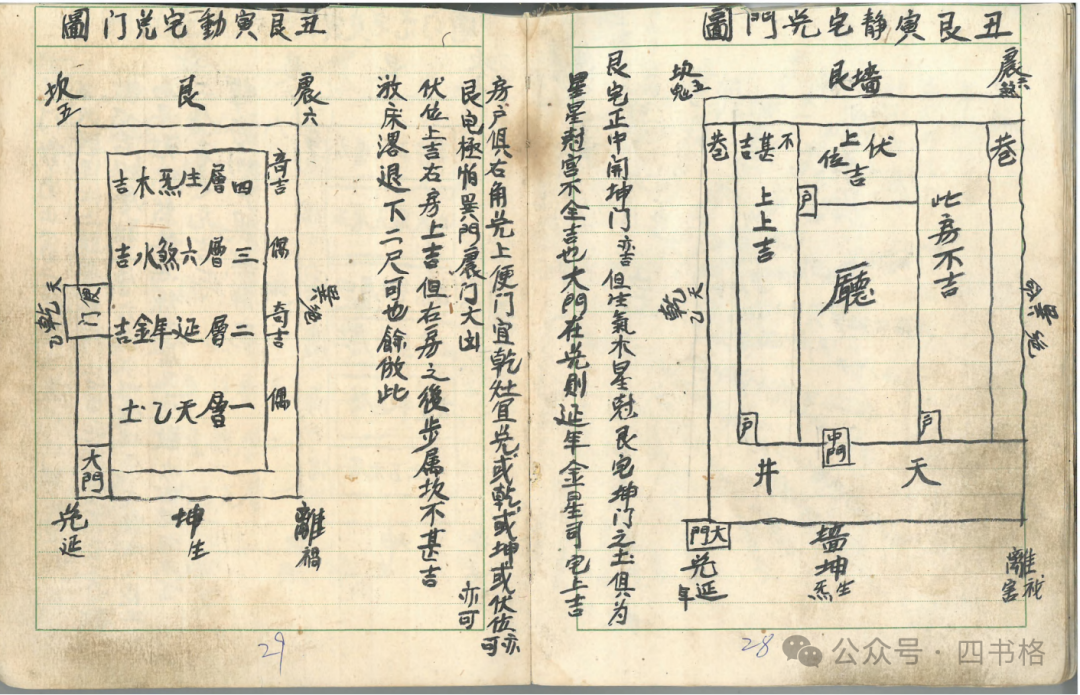 丑艮寅静宅兑門圖
震六煞
艮墙
坎五鬼
巷
伏位上吉
不甚吉
巷
戶
此房不吉
廳
上上吉
巽絕
乾天乙
戶
中門
戶
天井
大門
兑延年
墙坤生炁
離祸害
艮宅正中開坤門亦吉但生氣木星尅艮宅坤門之土俱为
星星尅宫不全吉也大門在兑則延年金星司宅上吉
28
公众号·四书格
丑艮寅動宅兑门圖
房户俱右角兑上便门宜乾灶宜兑或乾或坤或伏位亦可
艮宅極怕巽門震门大凶
亦可
伏位上吉右房上吉但右房之後步属坎不甚吉
放床畧退下二尺可也餘倣此
震六
艮
坎五
奇吉
四層生炁木吉
偶
三層六煞水吉
奇吉
二層延年金吉
偶
一層天乙土
巽絕
乾天乙
便门
大門
離禍
坤生
兑延
29